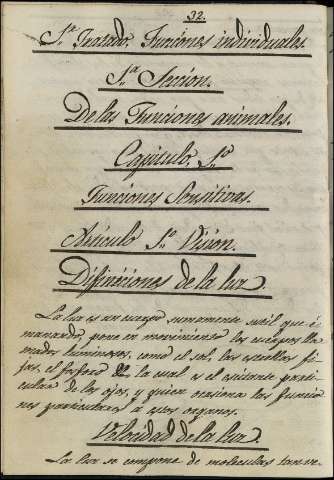 32.
1.ª Trasado. Funciones individuales.
1.ª Seccion.
De las Funciones animales.
Capitulo. 1.º
Funciones Sensitivas.
Articulo 1.º Vision.
Difiniciones de la luz
La luz es un cuerpo sumamente sutil que e-
manando, pone en movimiento los cuerpos lla-
mados luminosos, como el sol, las estrellas fi-
jas, el fosforo la cual es el exitante parti-
cular de los ojos, y quien ocasiona las funcio-
nes particulares a esos organos.
Velocidad de la luz
La luz se compone de moleculas tan ve-